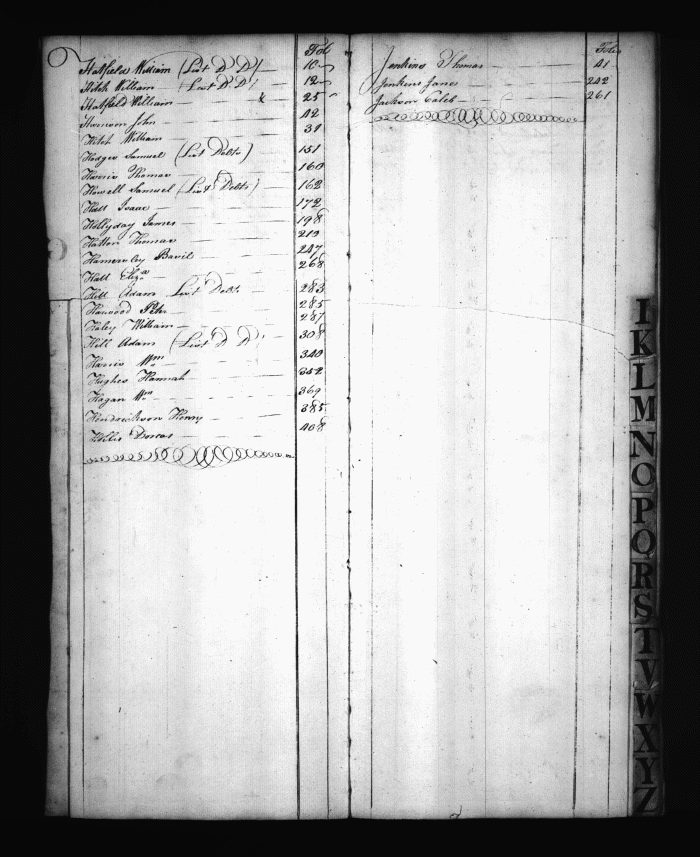 Fol
Hatfield William (List D D) 10
Hitch William (List D D) 12
Hatfield William 25
John 42
Hitch William 31
Hodges Samuel (List Debts) 151
Harris Thomas 160
Howell Samuel (List Debts) 162
Hall Isaac 172
Hollyday James 198
Hatton Thomas 213
Hamersley Bavil 247
Hall Eliza 268
Hill Adam List Debts 283
Harwood Peter 285
Haley William 287
Hill Adam (List D D 308
Harris Wm 340
Hughes Hannah 352
Hagan Wm 369
Hendrickson Henry 385
Hillis Dorcas 408
Folio
Jenkins Thomas 41
Jenkins Jane 242
Jackson Caleb 261
I
K
L
M
N
O
P
O
R
S
T
V
W
X
Y
Z